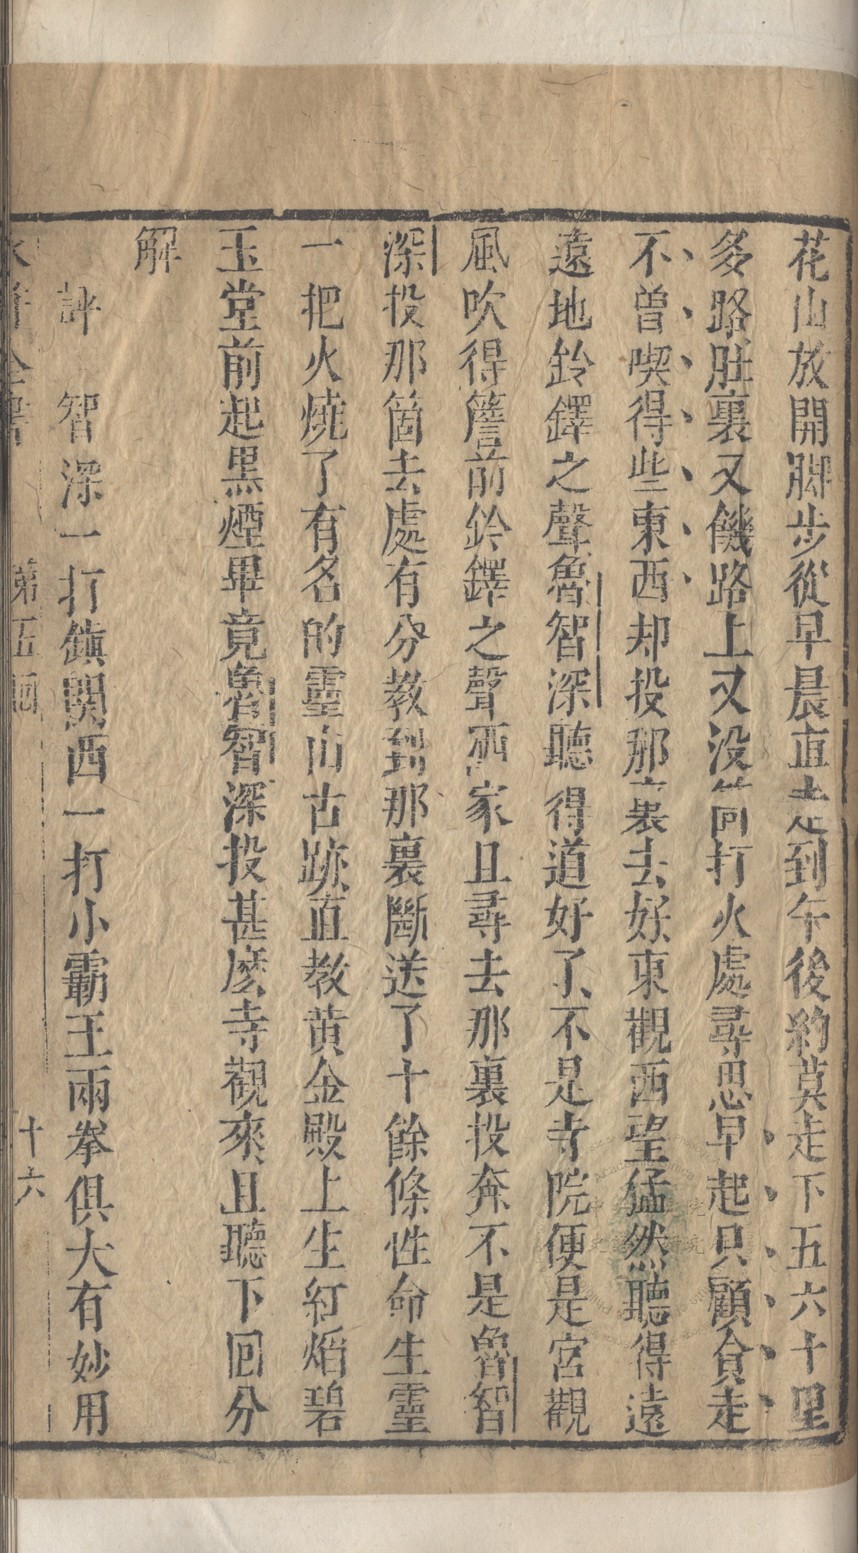 花山放開脚步從早晨直走到午後約莫走下五六十里
多路肚裏又饑路上又没箇打火處尋思早起只顧貪走
不曾喫得些東西却投那裏去好東觀西望猛然聽得遠
遠地鈴鐸之聲魯智深聽得道好了不是寺院便是宮觀
風吹得簷前鈴鐸之聲洒家且尋去那裏投奔不是魯智
深投那箇去處有分教到那裏斷送了十餘條性命生靈
一把火燒了有名的靈山古跡直教黄金殿上生紅焰碧
玉堂前起黑煙畢竟魯智深投甚麽寺觀來且聽下回分
解
評 智深一打鎮関西一打小霸王兩拳俱大有妙用
水滸全書 第五囘 十六